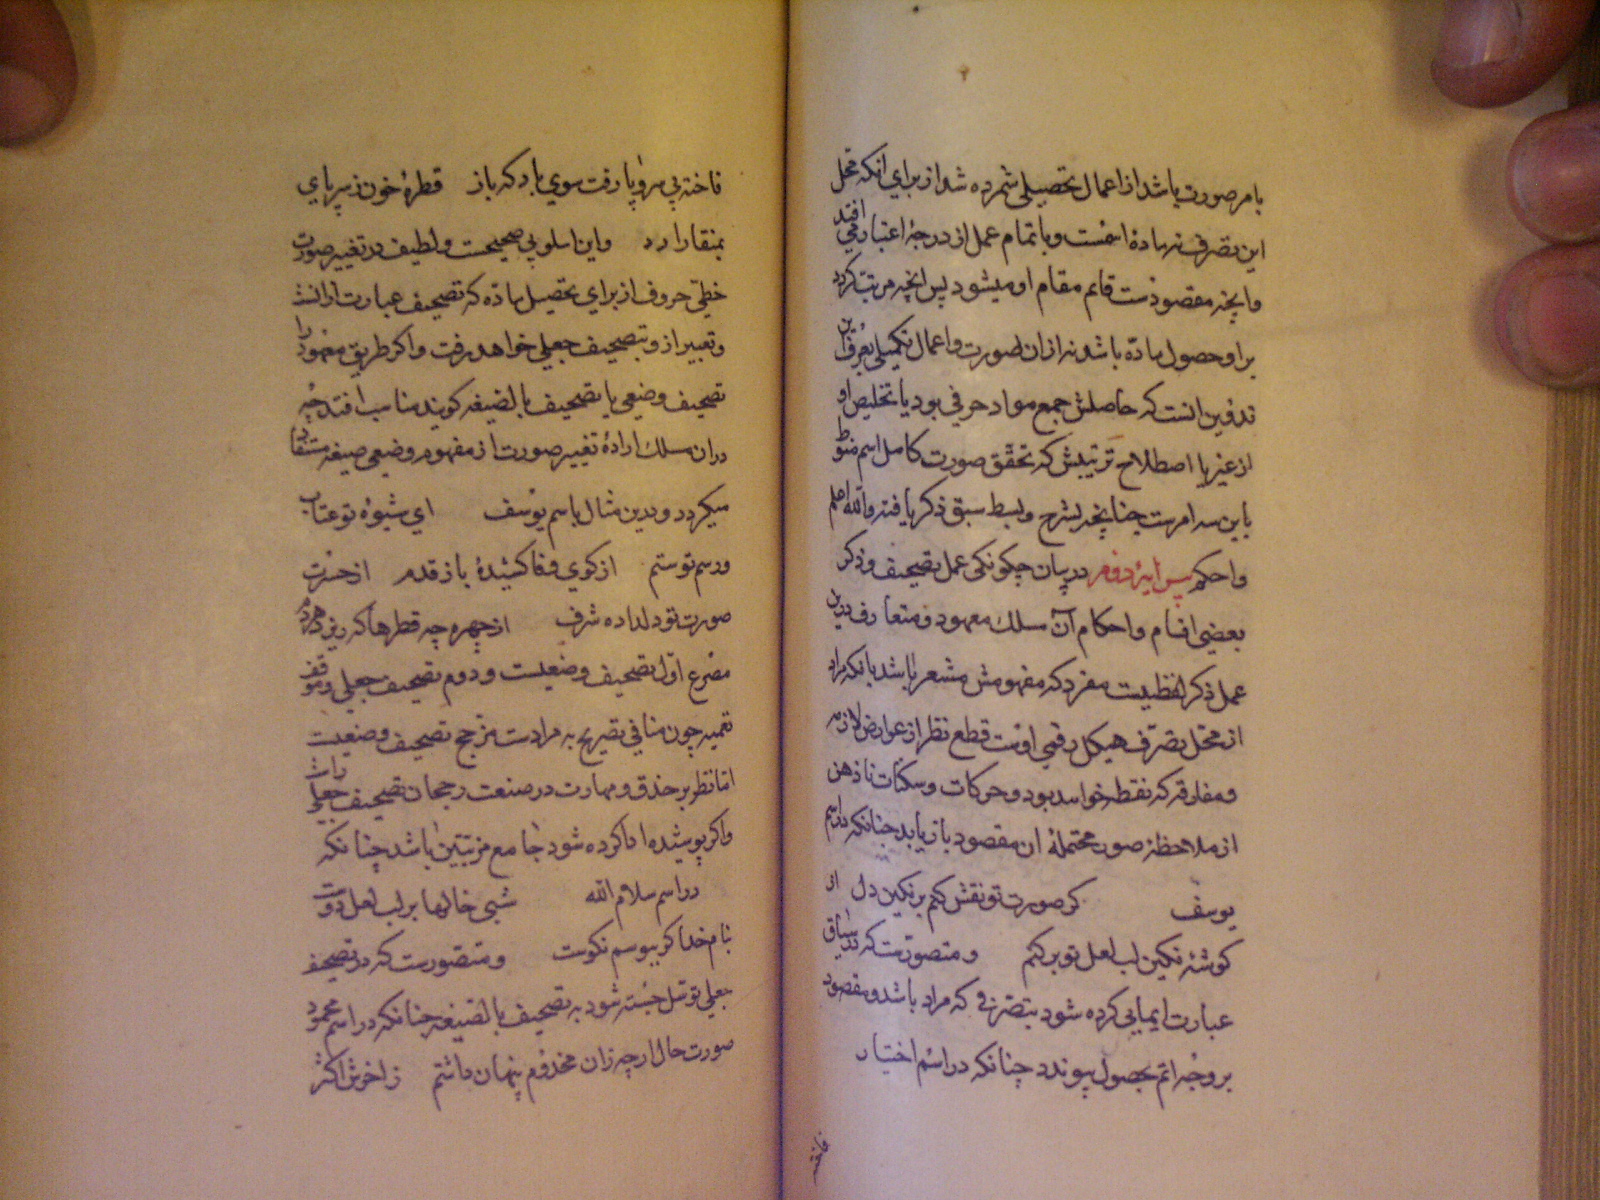 با مر صورت باشد از اعمال تحصیلی شمرده شد از برای انکه محل
این تصرف نه مادهٔ اسمست و با تمام عمل از درجهٔ اعتبار می افتد
وانچه مقصودست قایم مقام او میشود پس انچه مرتبت کردد
برا و حصول ماده باشد نه ازان صورت واعمال تکمیلی بعرف این
تدوین انست که حاصلش جمع مواد حرفی بود یا تخلیص او
از غیر یا اصطلاح ترتیبش که تحقق صورت کامل اسم منوط
باین سه امرست چنانچه بشرح وبسط سبق ذکر یافته والله اعلم
واحکم پیرایهٔ دوم در بیان چکونکی عمل تصحیف وذکر
بعضی اقسام واحکام آن مسلک معهود و متعارف درین
عمل ذکر لفظیست مفرد که مفهومش مشعر باشد بانکه مراد
از محل تصرف هیکل رقمی اوست قطع نظر از عوارض لازمه
ومفارقه که نقطه خواهد بود وحرکات وسکنات تا ذهن
از ملاحظهٔ صور محتملهٔ ان مقصود باز یابد چنانکه در اسم
یوسف کر صورت تو نقش کنم بر نکین دل از
کوشهٔ نکین لب لعل تو برکنم ومتصورست که در سیاق
عبارت ایمایی کرده شود بتصرفی که مراد باشد ومقصود
بر وجه اتم بحصول پیوندد چنانکه در اسم اختیار
فاخته
فاخته بی سر وپا رفت سوی باد که باز قطرهٔ خون ز سر پای
بمنقار ارد واین اسلوبی صحیحست ولطیف در تغییر صورت
خطی حروف از برای تحصیل ماده که تصحیف عبارت از انست
وتعبیر ازو بتصحیف جعلی خواهد رفت واکر طریق معهود را
تصحیف وضعی یا تصحیف بالصیغه کویند مناسب افتد چه
دران مسلک ارادهٔ تغییر صورت از مفهوم وضعی صیغه مستفاد
میکردد وبدین مثال باسم یوسف ای شیوهٔ تو عتاب
ورسم تو ستم از کوی وفا کشیدهٔ باز قدم از حسرت
صورت تو دلداده شرف از چهره چه قطرها که ریزد هردم
مصرع اول تصحیف وضعیست ودوم تصحیف جعلی وموقف
تعمیه چون منافی تصریح به مرادست مرجح تصحیف وضعیست
اما نظر بر حذق ومهارت در صنعت رجحان تصحیف جعلی راست
واکر پوشیده ادا کرده شود جامع مزیتین باشد چنانکه
در اسم سلام الله شبی خالها بر لب لعل دوست
بنام خدا کر ببوسم نکوست ومتصورست که در تصحیف
جعلی توسل جسته شود به تصحیف بالصیغه چنانکه در اسم محمود
صورت حال ارچه زان مخدوم پنهان داشتم ز اخرش اکثر